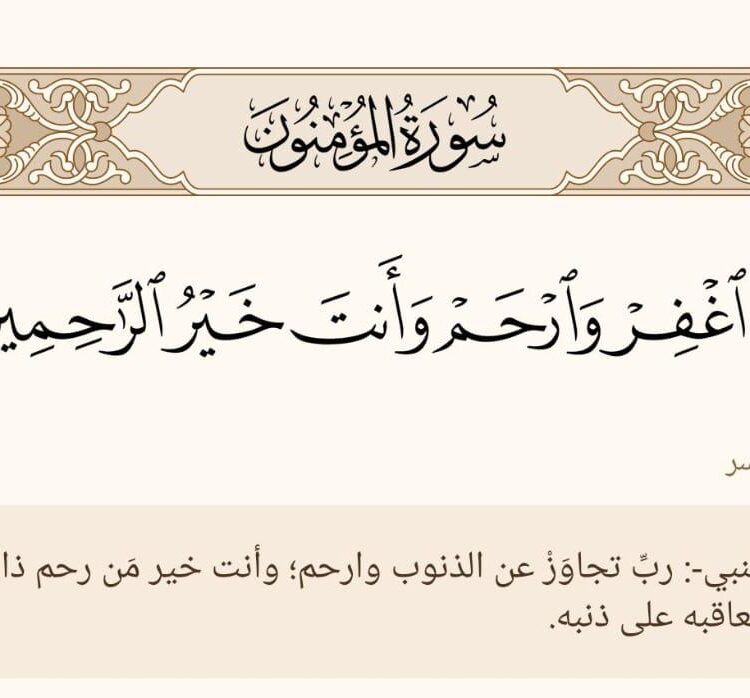 سُورَةُ المُؤْمِنُونَ
ٱغْفِرْ وَٱرْحَمْ وَأَنتَ خَيْرُ ٱلرَّٰحِمِي
نبي-: ربِّ تجاوَزْ عن الذنوب وارحم؛ وأنت خير مَن رحم ذا
عاقبه على ذنبه.